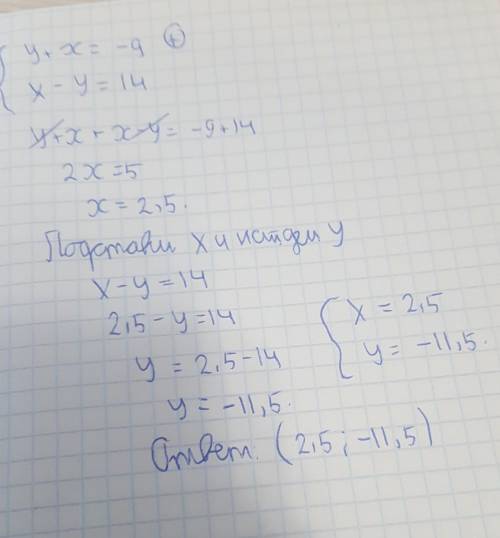 { y + x = -9 (+)
x - y = 14
y + x + x - y = -9 + 14
2x = 5
x = 2,5.
Подставим x и найдем y
x - y = 14
2,5 - y = 14
y = 2,5 - 14
y = -11,5.
{ x = 2,5
y = -11,5.
Ответ. (2,5 ; -11,5)